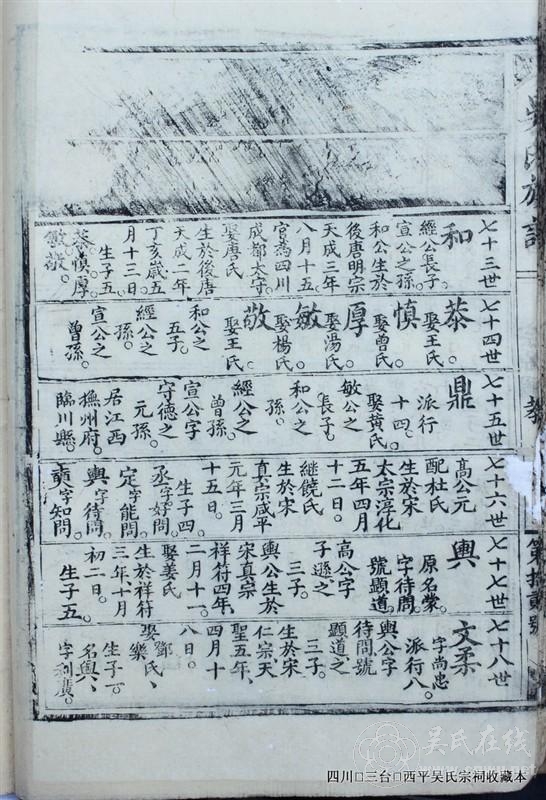 吳氏族譜
教
第拾貳號
七十三世
和
經公長子。
宣公之孫。
和公生於
後唐明宗
天成三年
八月十五。
官為四川
成都太守。
娶唐氏
生於後唐
天成二年
丁亥歲五
月十三日。
生子五。
恭慎。厚。
敏敬。
七十四世
恭 娶王氏。
慎 娶曾氏。
厚 娶湯氏。
敏 娶楊氏。
敬 娶王氏
和公之
五子。
經公之
孫。
宣公之
曾孫。
七十五世
鼎
派行
十四。
娶黃氏。
敏公之
長子。
和公之
孫。
經公之
曾孫。
宣公字
守德之
元孫。
居江西
撫州府。
臨川縣。
七十六世
高公元
配杜氏
生於宋
太宗淳化
五年四月
十二日。
繼饒氏
生於宋
真宗咸平
元年三月
十五日。
生子四。
丞字好問。
定字能問。
輿字待問。
賁字知問。
七十七世
輿
原名蒙。
字待問。
號顯道。
高公字
子遜之
三子。
輿公生於
宋真宗
祥符四年
二月十一。
娶姜氏
生於祥符
三年十月
初二日。
生子五。
七十八世
文柔
字尚忠
派行八。
輿公字
待問號
顯道之
三子。
生於宋
仁宗天
聖五年、
四月十
八日。
娶鄧氏、
樂
生子一。
名輿、
吴氏在线
四川□三台□西平吴氏宗祠收藏本